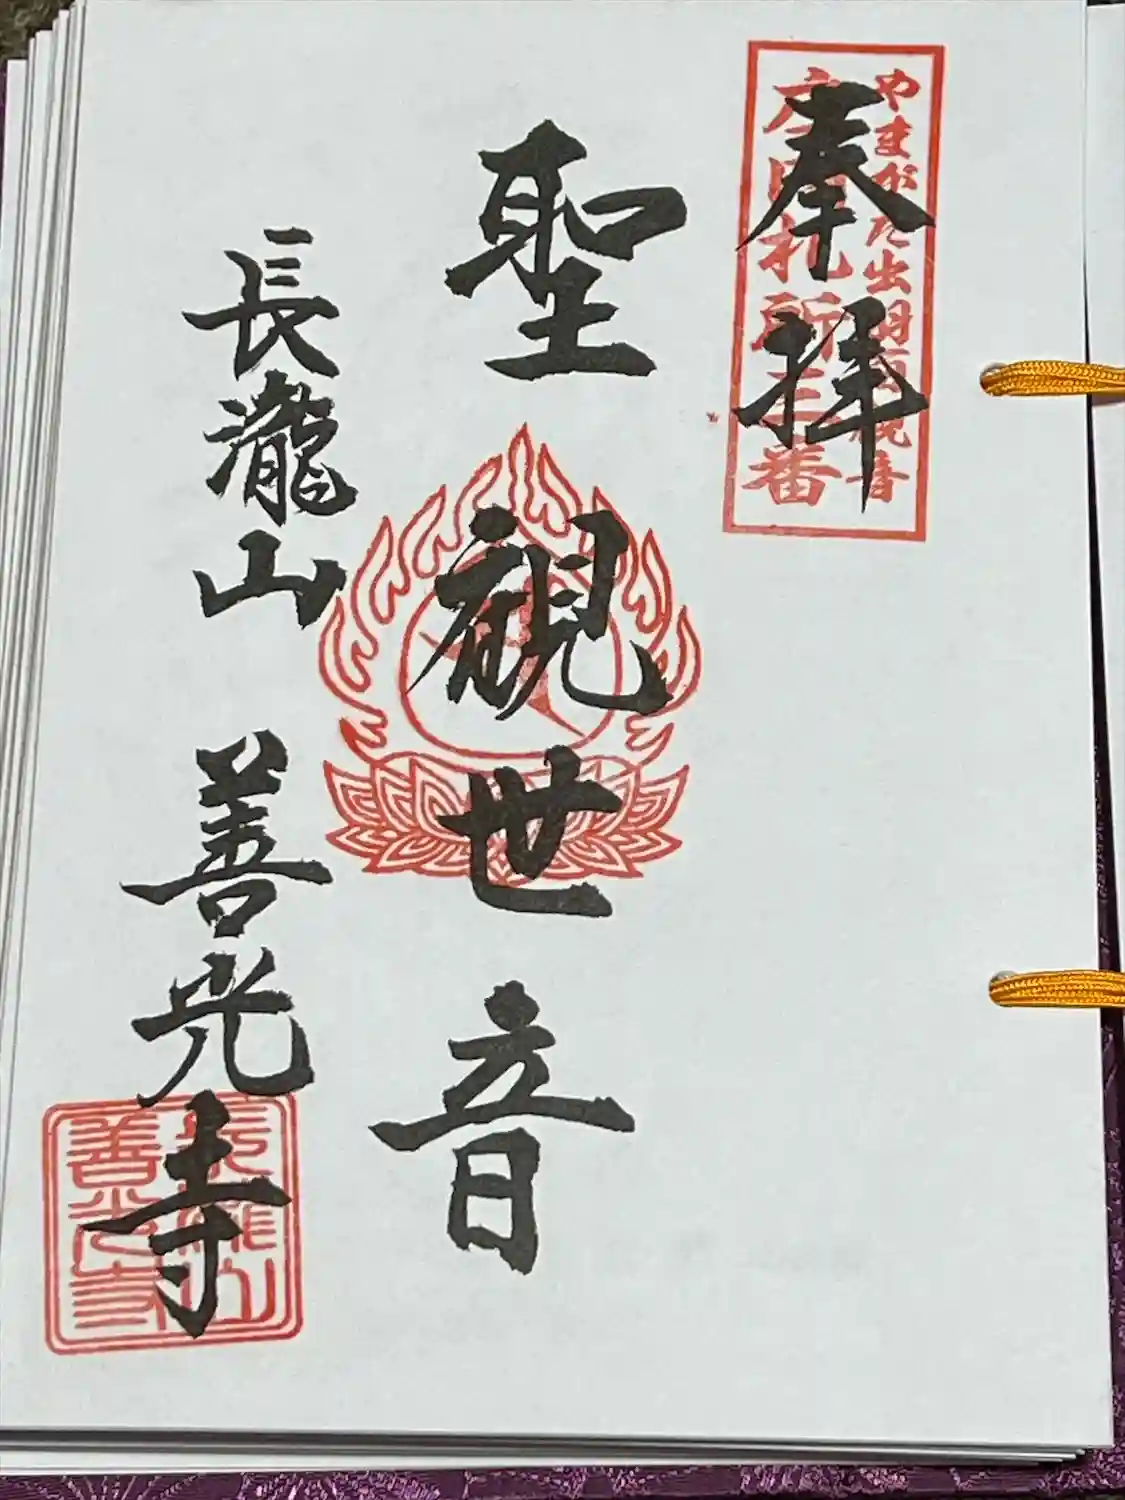 やまがた出羽百観音
札所三番
奉拝
聖観世音
長瀧山 善光寺
長瀧山
善光寺